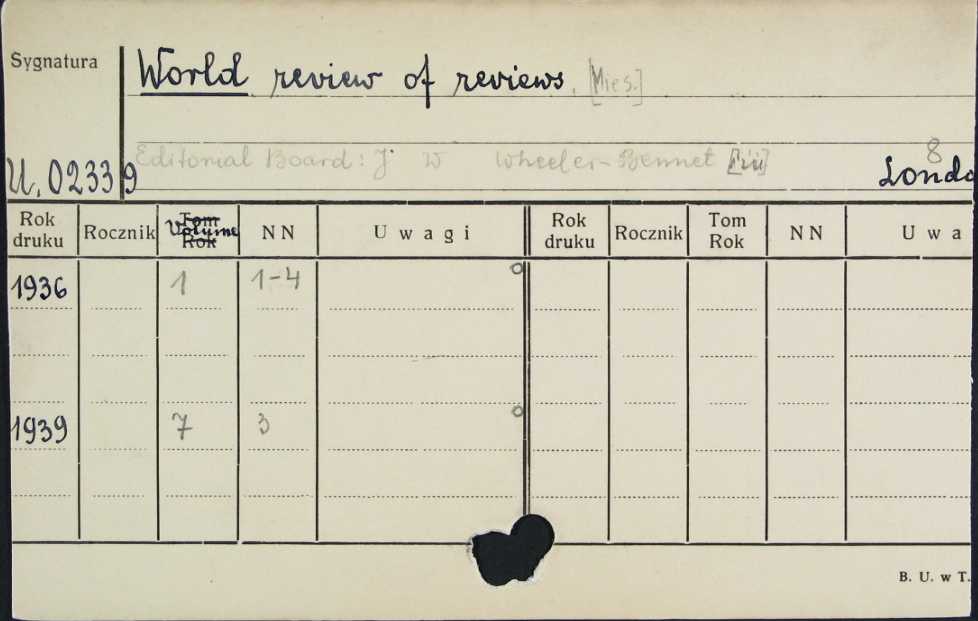 Sygnatura World review of reviews. [Mies.]
Editorial Board: J W Wheeler-Bennet [iii] 8
U. 02339 Londo
Rok druku Rocznik Tom Volume Rok NN Uwagi Rok druku Rocznik Tom Rok NN Uwa
1936 1 1-4
1939 7 3
B. U. w T.